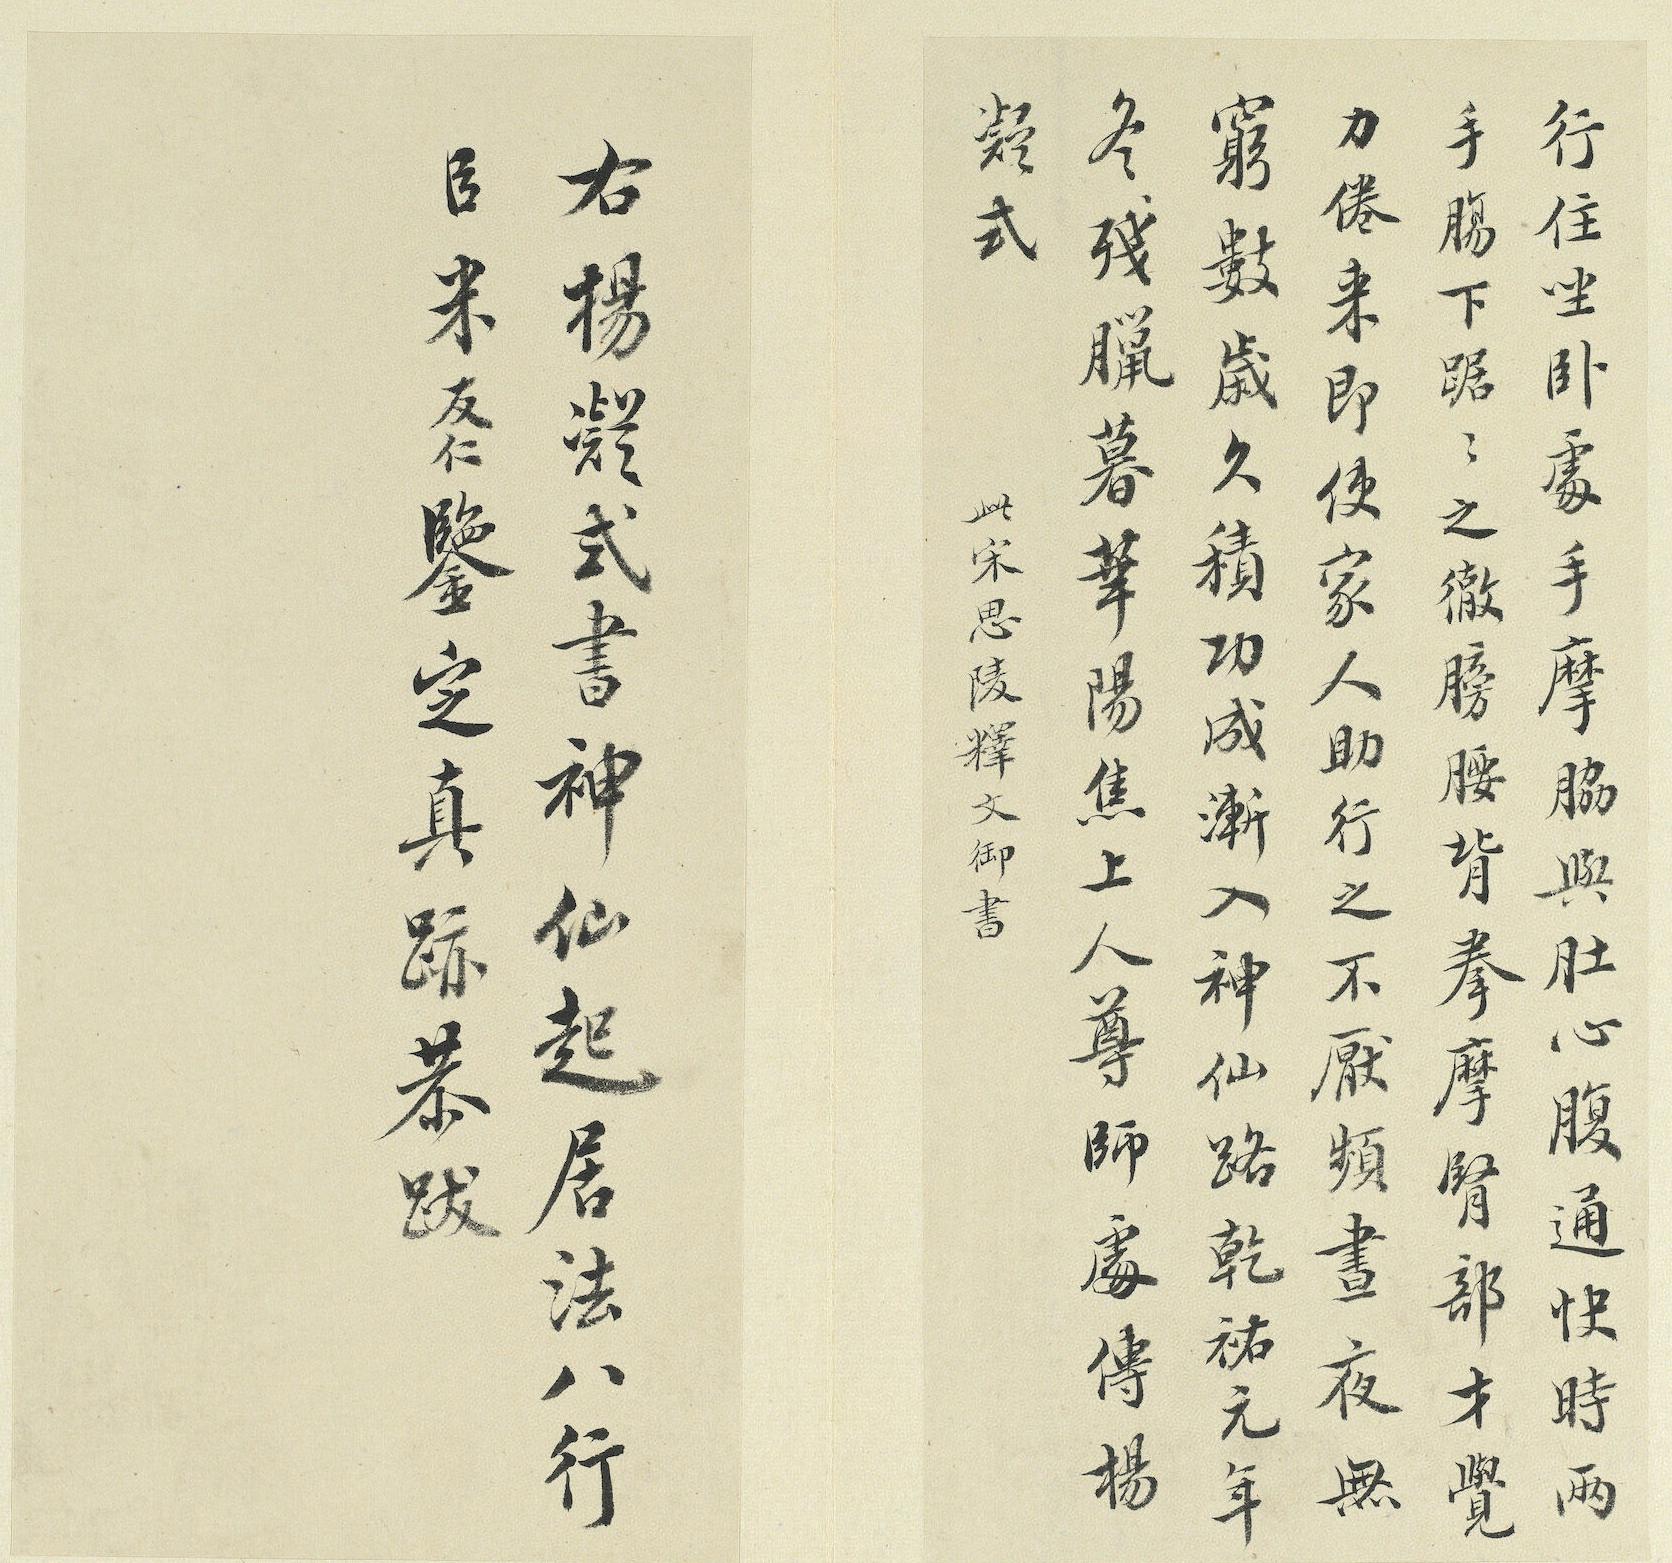 行住坐臥處手摩脇與肚心腹通快時兩
手腸下踞〻之徹膀腰背拳摩腎部才覺
力倦来即使家人助行之不厭頻晝夜無
窮數歲久積功成漸入神仙路乾祐元年
冬殘臘暮華陽焦上人尊師處傳楊
凝式
此宋思陵釋文御書
右楊凝式書神仙起居法八行
臣米友仁鑒定真跡恭跋